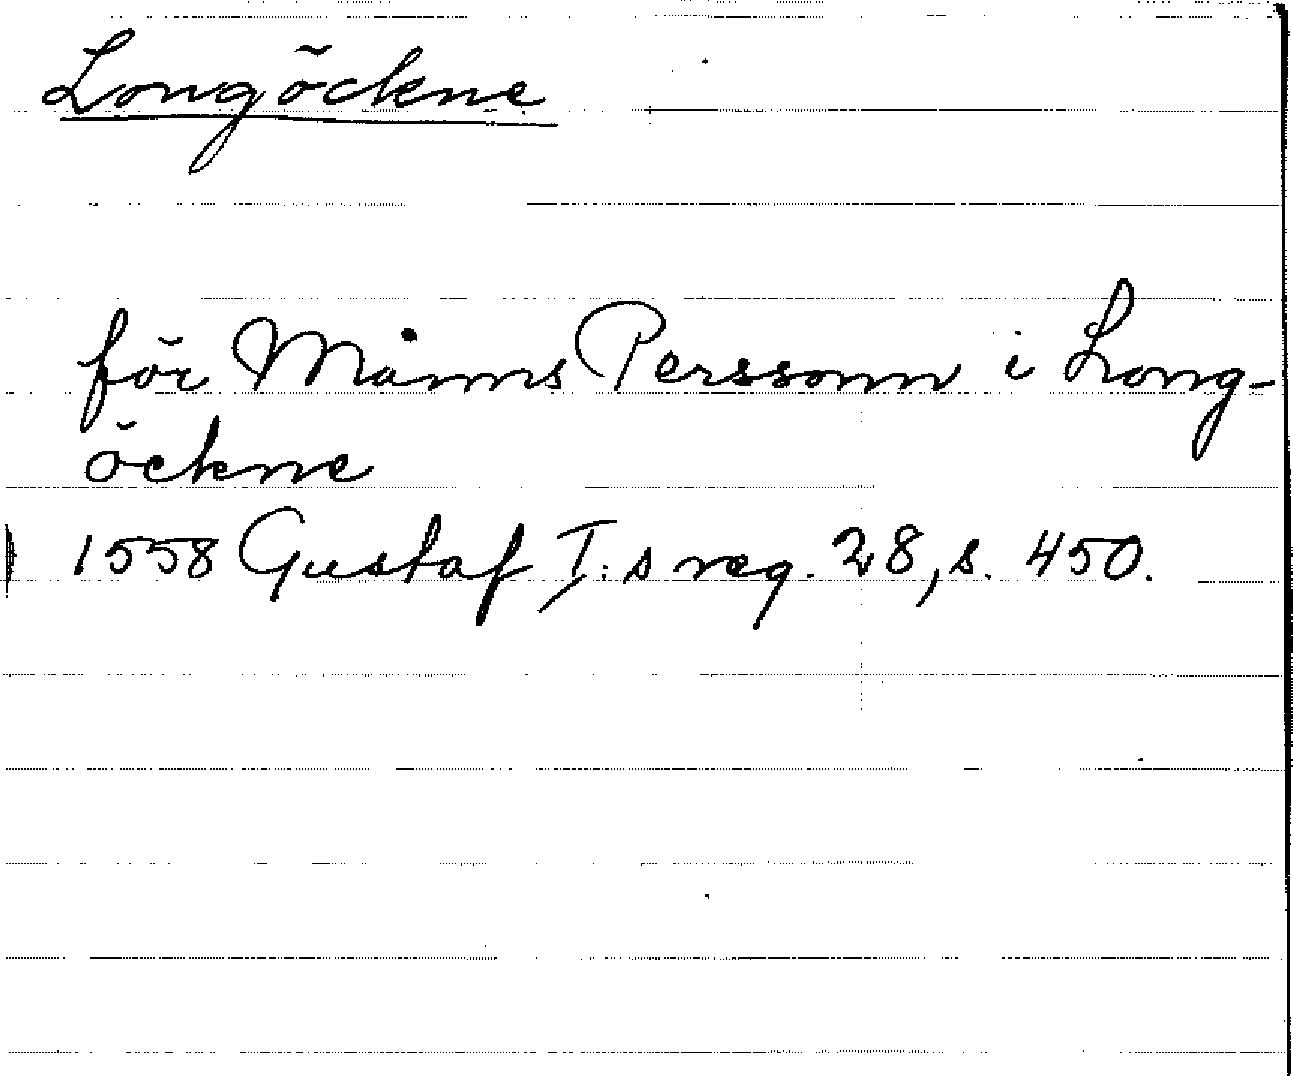 Longöckne
för Måns Perssonn i Long-
öckne
1558 Gustaf I:s reg. 28, s. 450.